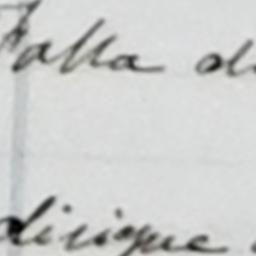 Falla d
dirique